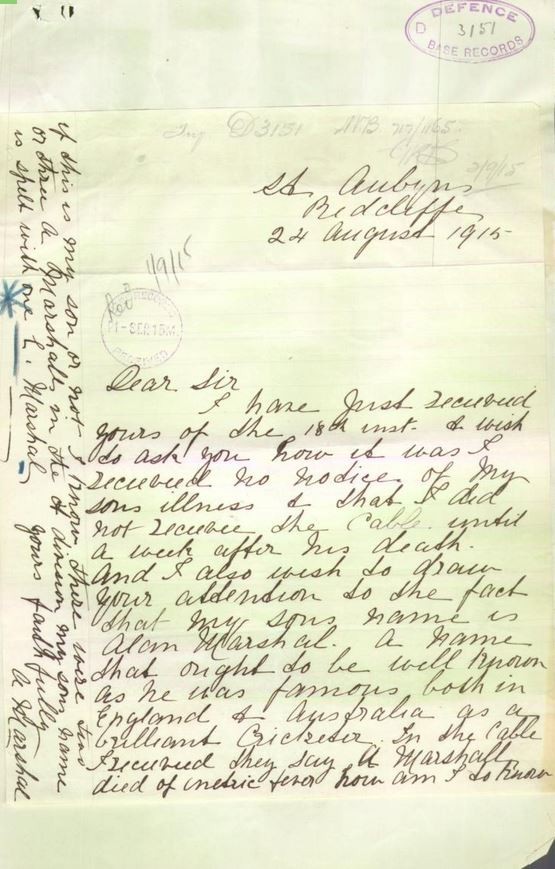 DEFENCE
D 3151
BASE RECORDS
D3151
2/9/15
St Aubyns
Redcliffe
24 August 1915
Recd 1/9/15
1-SEP.15
RECEIVED
Dear Sir
I have just received
yours of the 18th inst. & wish
to ask you how it was I
received no notice of my
sons illness & that I did
not receive the Cable until
a week after his death.
And I also wish to draw
your attention to the fact
that my sons name is
Alan Marshal. A name
that ought to be well known
as he was famous both in
England & Australia as a
brilliant Cricketer. In the Cable
I received they say A Marshall
died of interic fever how am I to know
if this is my son or not I know there were two
or three A Marshalls in the 4 division my sons name
is spelt with one L. Marshal
yours faithfully
A Marshal